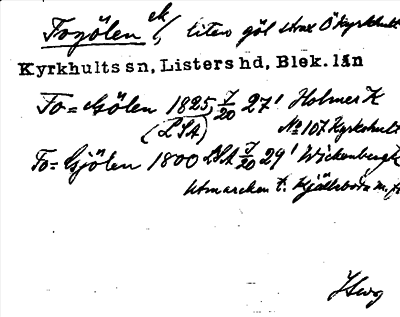 Togölen ek, liten göl strax Ö Kyrkhult
Kyrkhults sn, Listers hd, Blek. län
To=Gölen 1825, J/20 27' Holmer K
(LSA) No 107 Kyrkhult
To=Gjölen 1800 LSA J/20 29' Wickenberg K
Utmarken t. Kjällsboda m. fl